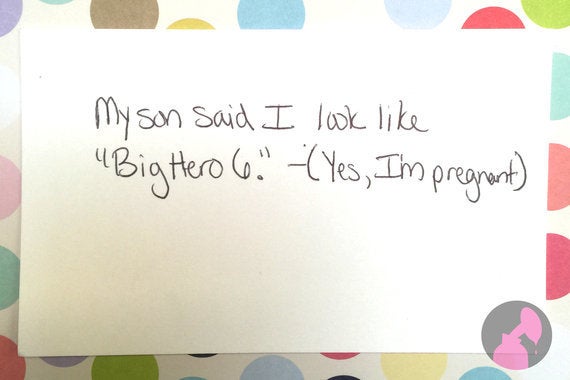 My son said I look like
"Big Hero 6." -(Yes, I'm pregnant)